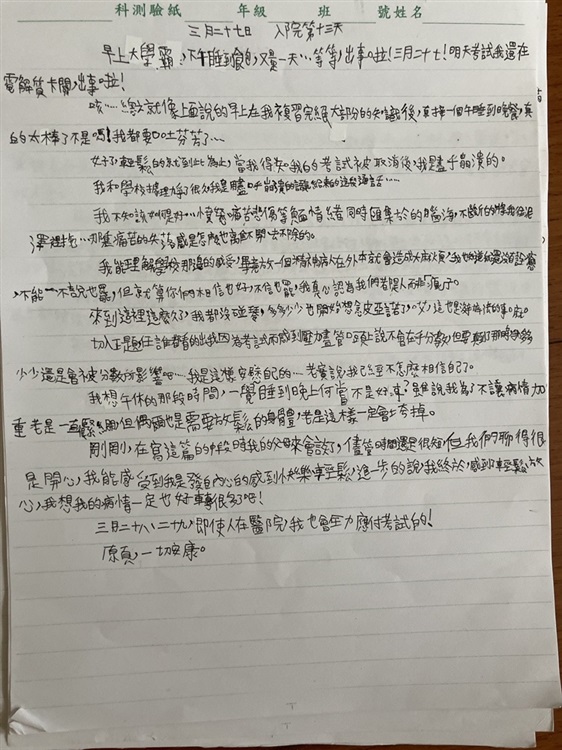 科測驗紙　年級　班　號姓名
三月二十七日　入院第十三天
早上大學霸，下午睡到飽，又是一天…等等，出事啦！三月二十七！明天考試我還在
電解質卡關，出事啦！
咳…總之就像上面說的早上在我複習完絕大部分的知識後，直接一個午睡到晚餐，真
的太棒了不是嗎！我都要口吐芬芳了…
好了輕鬆的就到此為止，當我得知我的考試被取消後，我是瀕乎崩潰的。
我和學校據理力爭了很久我是瀕乎崩潰的讓給軒的這段通話…
我不知該如何是好…憤怒痛苦悲傷等負面情緒同時匯集於的腦海，不斷的將我往泥
澤裡拖…那種痛苦的失落感是怎麼也離不開、去不除的。
我能理解學校那邊的感受，畢竟放一個精神病人在外本就會造成大麻煩，我也
，不能…不說也罷，但就算你們相信也好，不信也罷，我真心認為我們若是人而非「瘋子」。
來到這裡這麼久了，我都沒碰琴，多多少少也開始想念皮亞諾了，哎，這也是沒辦法的事呢。
切入正題任誰都看的出我因為考試而感到壓力儘管口頭上說不會在乎分數，但要真到了那時多多
少少還是會被分數所影響吧…我是這樣安慰自己的…老實說我已經不怎麼相信自己了。
我想午休的那段時間，一覺睡到晚上何嘗不是好事？雖說我為了不讓病情加
重老是一直緊繃但偶爾也是需要放鬆的身體，老是這樣一定會夸掉。
剛剛，在寫這篇的中段時我的父母來會談了，儘管時間還是很短，但我們聊得很
是開心，我能感受到我是發自內心的感到快樂輕鬆，進步的說，我終於，感到輕鬆、放
心，我想我的病情一定也好轉很多了吧！
三月二十八、二十九，即使人在醫院，我也會全力應付考試的！
原頁，一切安康。